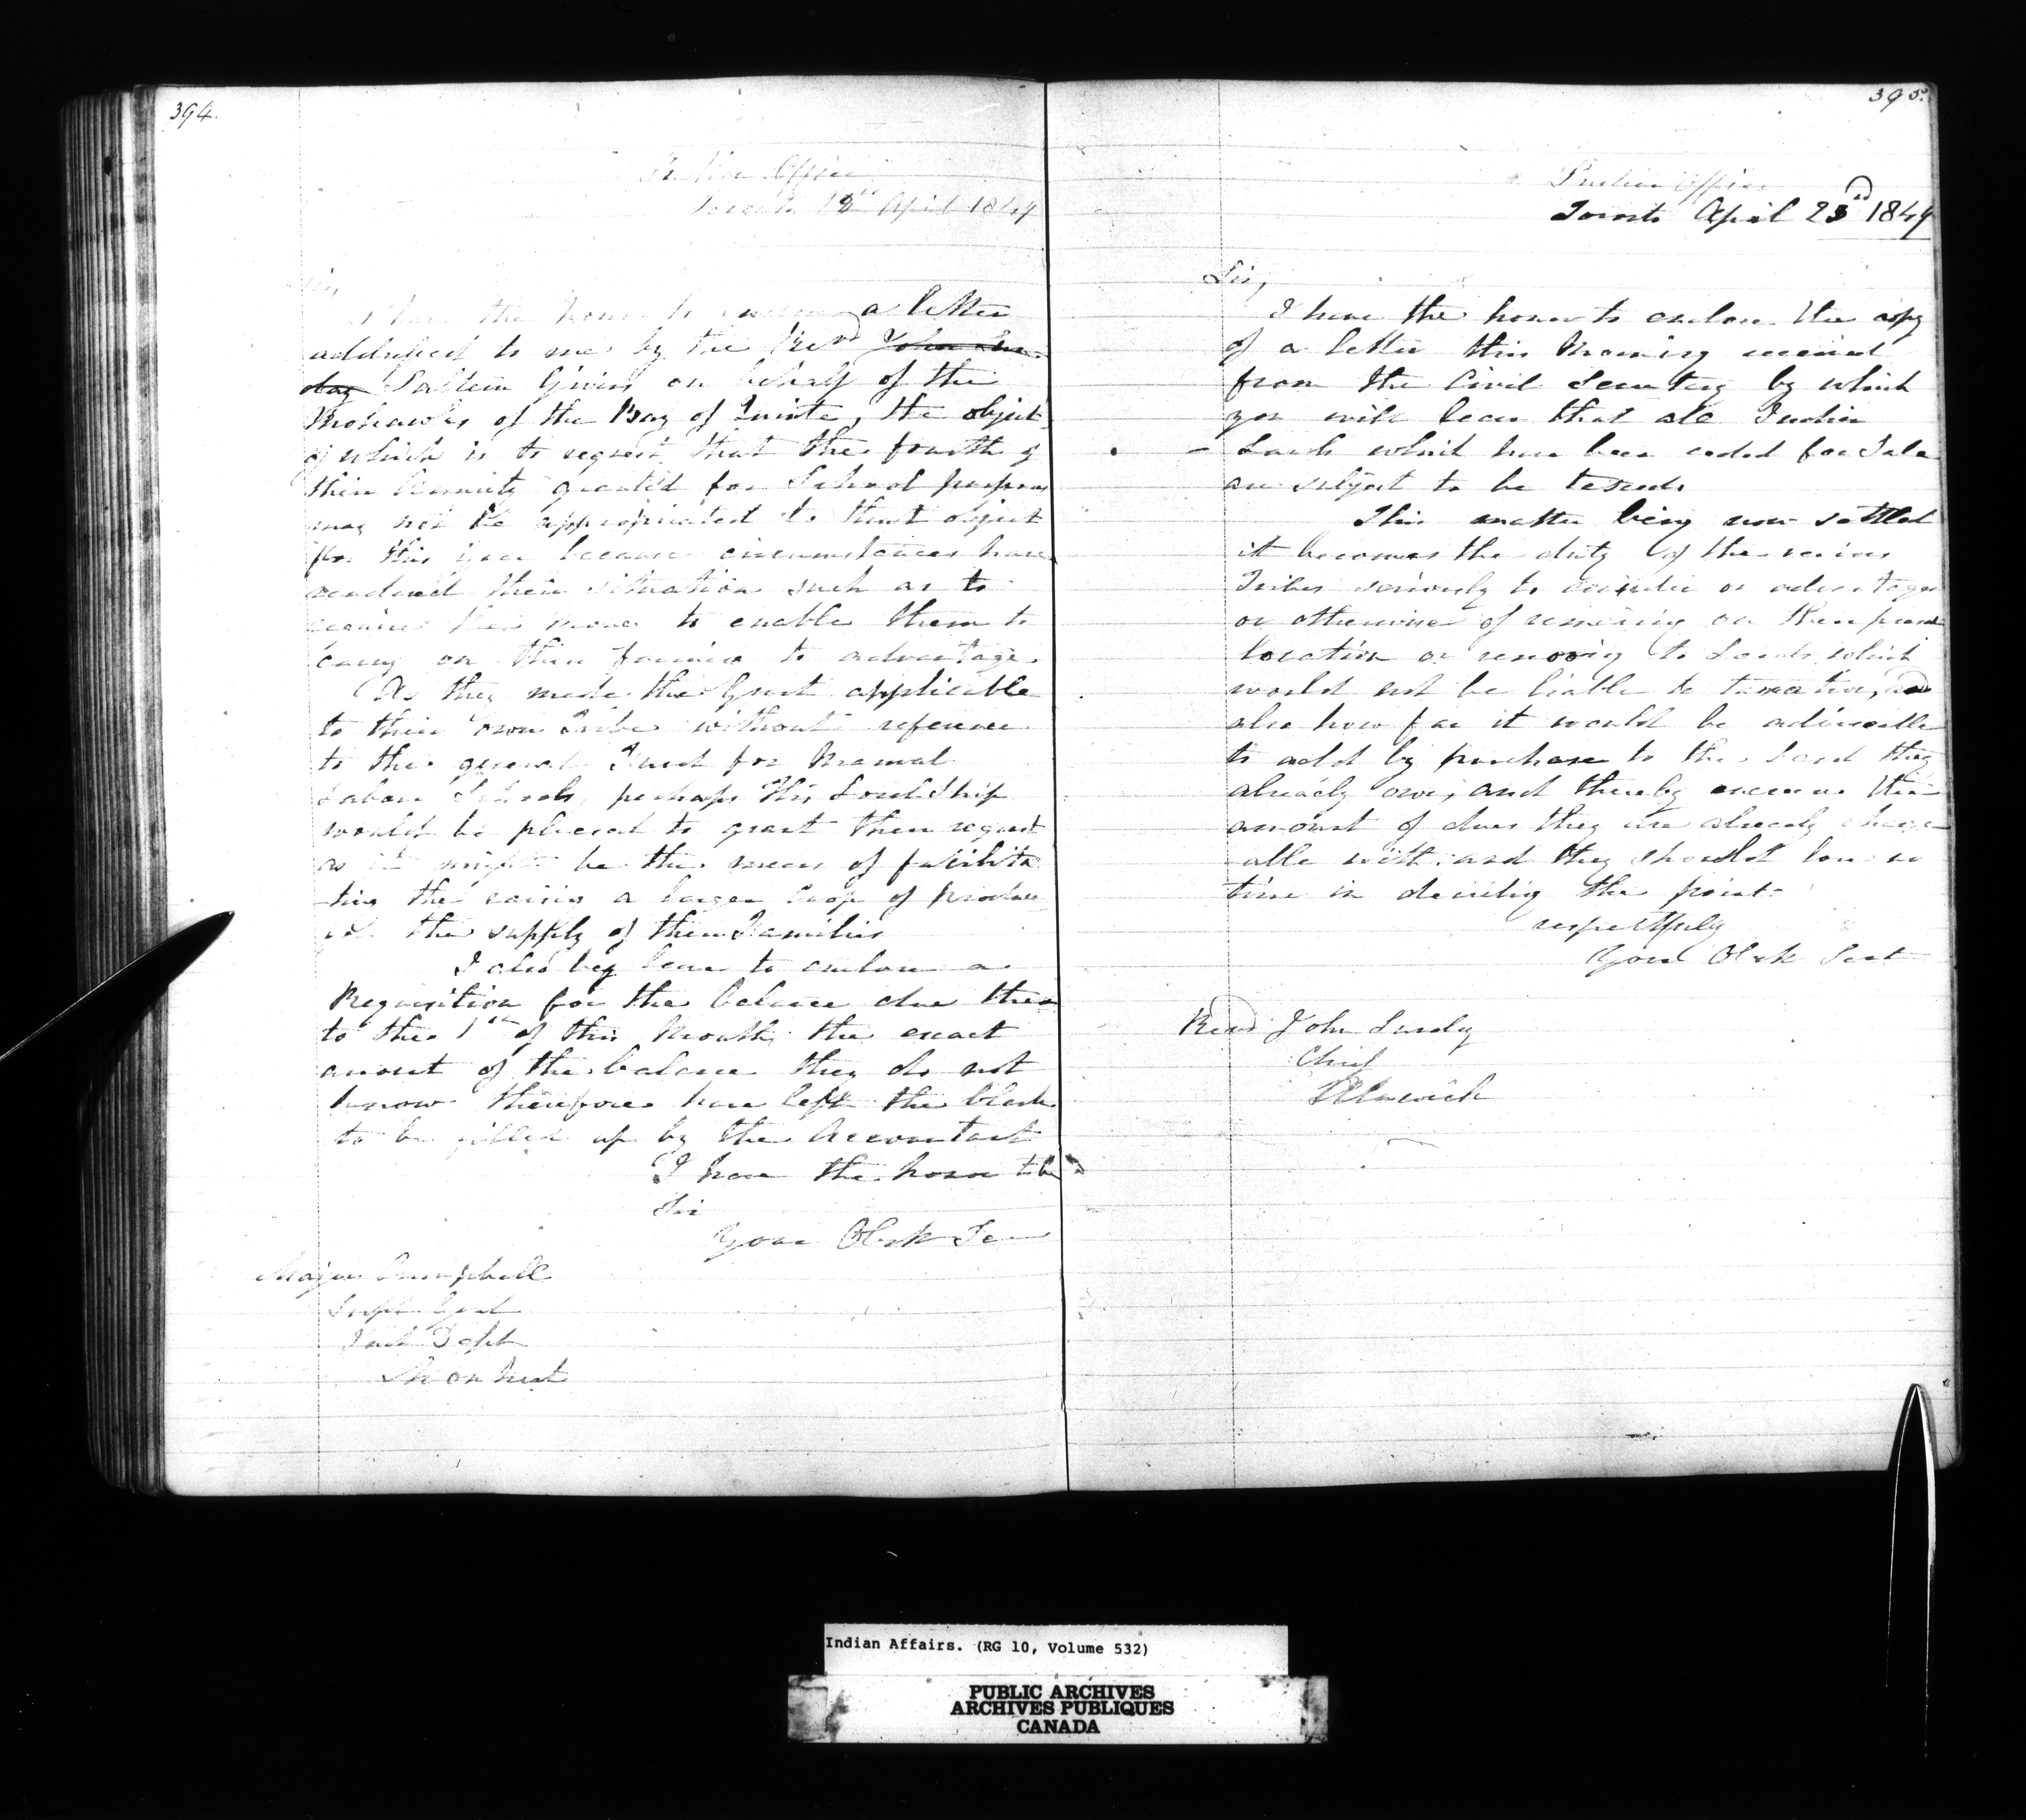 394.
Indian Office
Toronto 18th April 1849
Sir,
I have the honor to enclose a letter
addressed to me by the Revd John Sun-
day Saltern Givins on behalf of the
Mohawks of the Bay of Quinte, the object
of which is to request that the fourth of
their Annuity granted for School purposes
may not be appropriated to that object
for this year because circumstances have
rendered their situation such as to
require the money to enable them to
carry on their farming to advantage.
As they made the Grant applicable
to their own Tribe without reference
to the general Fund for Manual
Labour Schools, perhaps His Lordship
would be pleased to grant their request
as it might be the means of facilita
-ting the raising a larger Crop of produce
for the supply of their Families
I also beg leave to enclose a
Requisition for the balance due them
to the 1st of this Month the exact
amount of the balance they do not
know therefore have left the blank
to be filled up by the Accountant
I have the honor to be
Sir
Your Obdt Ser
Major Campbell
Supt Genl
Ind Dept
Montreal
395.
Indian Office
Toronto April 23rd 1849
Sir,
I have the honor to enclose the copy
of a letter this Morning received
from the Civil Secretary by which
you will learn that all Indian
Lands which have been ceded for Sale
are subject to be taxed.
This matter being now settled
it becomes the duty of the various
Tribes seriously to consider or advantage
or otherwise of remaining on their present
location or removing to Lands which
would not be liable to taxation, and
also how far it would be advisable
to add by purchase to the Land they
already own, and thereby increase the
amount of dues they are already charge
-able with and they should lose no
time in deciding the point.
respectfully
Your Obdt Servt
Revd John Sunday
Chief
Alnwick
Indian Affairs. (RG 10, Volume 532)
PUBLIC ARCHIVES
ARCHIVES PUBLIQUES
CANADA